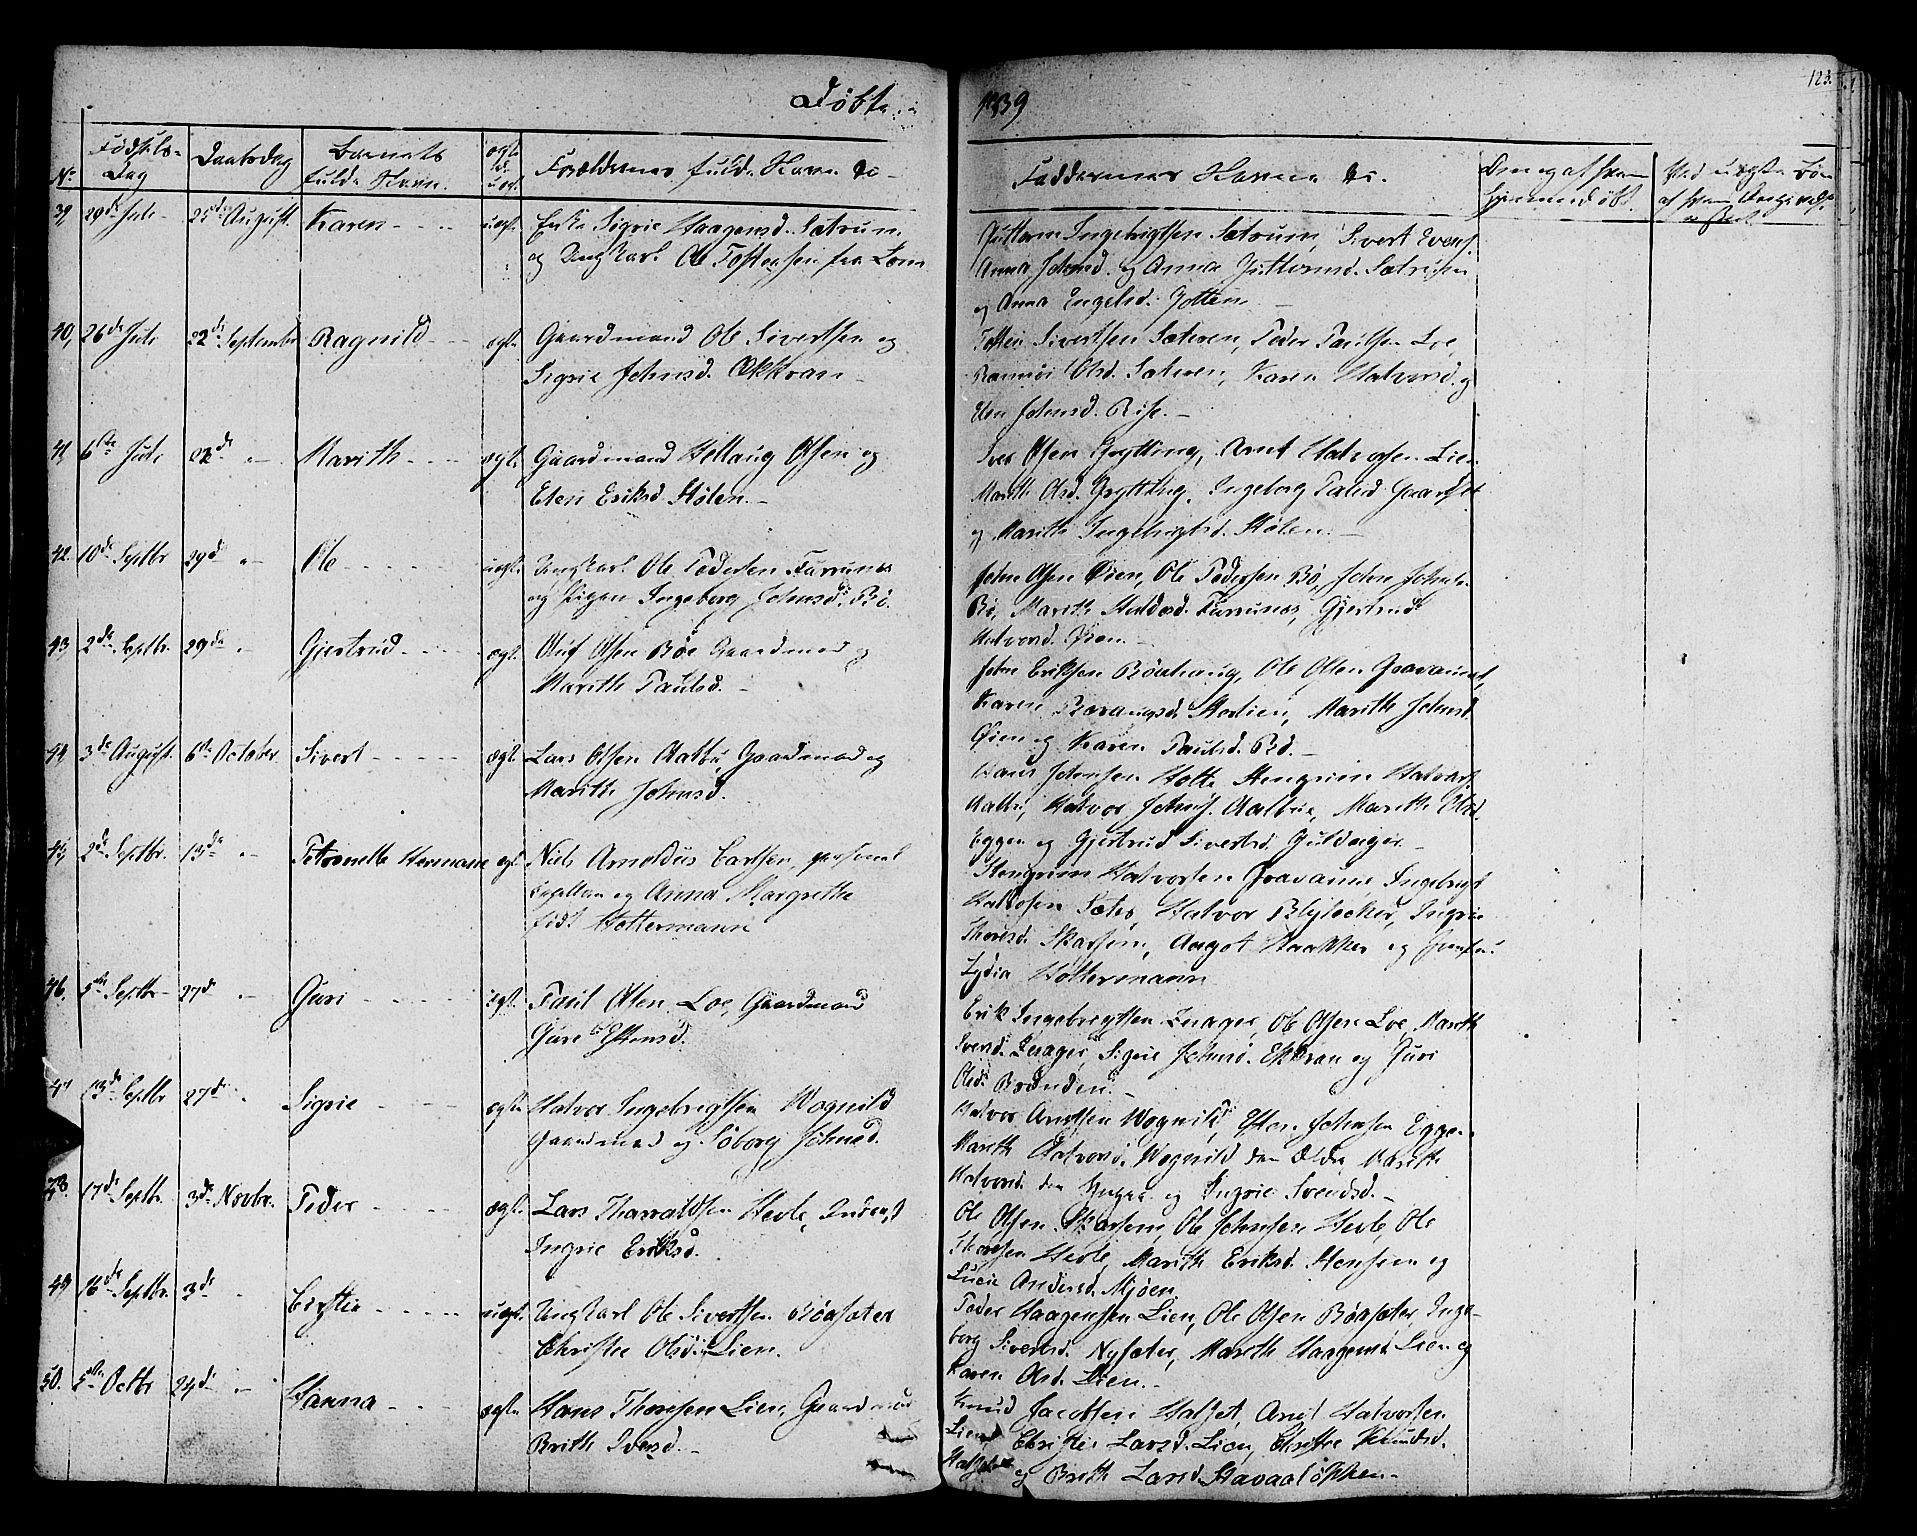 Døbte
1839
123.
No.
Fødsels-
Dag
Daabsdag
Barnets
fulde Navn.
ægte
uægt.
Forældrenes fulde Navn &c
Faddernes Navne &c.
39, 29de Juli 25de August. Karen uægt. Enke Sigrie Haagensd. Sætrum
og Ungkarl Ole Tostensen fra Lom
Guttorm Ingebrigtsen Sætrum, Sivert Evens.
Anna Johnsd. og Anna Guttormsd. Sætrum
og Anna Engelsd. Jotten
40, 26de Juli 22de September Ragnild ægte Gaardmand Ole Sivertsen og
Sigrie Johnsd. Ækkran
Sivertsen Sætren, Peder Paulsen Loe,
Olsd. Sætren, Karen Halvorsd. og
Johnsd. Rise.
41, 6te Juli 22de " Marith ægt. Gaardmand Helloug Olsen og
Elen Eriksd. Stølen.
Iver Olsen Grytting, Arnt Halvorsen Lien
Marith Olsd. Grytting, Ingeborg
og Marith Ingebrigtsd. Stølen.
42. 10de Septbr 29de " Ole uægt. Ungkarl Ole Pedersen Furrunes
og Pigen Ingeborg Johnsd. Bø.
John Olsen Øien, Ole Pedersen Bø, John Johns.
Bø, Marith Furrunes, Gjertrud
Halvorsd. Øien.
43, 2de Septbr. 29de " Gjertrud ægt. Oluf Olsen Böe Gaardmand og
Marith Paulsd.
John Eriksen Böehaug, Ole Olsen Gravaune,
Karen Stølien, Marith Johnsd.
Øien og Karen Paulsd. Bø.
44 3de August. 6te October Sivert ægt. Lars Olsen Aalbu, Gaardmand og
Marith Johnsd.
Hans Johnsen Holte Stengrim Halvors.
Aalbu, Halvor Johns. Aalbue, Marith Olsd.
Eggen og Gjertrud Sivertsd. Guldager
45, 2de Septbr. 13de " Petronelle Hermane ægt. Niels Arnoldus Carlsen, personel
Capellan og Anna Margrethe
født Holtermann
Stengrim Halvorsen Gravaune Ingebrigt
Halvorsen Sæter, Halvor Ingrie
Thoresd. Skarsem, Aagot Haakker og
Lydia Holtermann
46. 5te Septbr 27de " Guri ægt. Paul Olsen Loe, Gaardmand
Guri Estensd.
Erik Ingebrigtsen Ole Olsen Loe, Marith
Svensd. Sigrie Johnsd. Ekkran og Guri
Olsd. Brænden.
47 13de Septbr 27de " Sigrie ægte Halvor Ingebrigtsen Wognild
Gaardmand og Søborg Johnsd.
Halvor Arntsen Wognild, Esten Johnsen Eggen
Marith Halvorsd. Wognild den Ældre Marith
Halvorsd. den Yngre og Ingrie Svendsd.
48. 17de Septbr. 3de Novbr. Peder ægt. Lars Tharraldsen Hevle, Inderst
Ingrie Eriksd.
Ole Olsen Skarsem, Ole Johnsen Hevle, Ole
Thoresen Hevle, Marith Eriksd. Stensem og
Lucie Andersd. Mjøen
49 16de Septbr. 3de " Kirstie uægt. Ungkarl Ole Sivertsen Böesæter
Christie Olsd. Lien.
Peder Haagensen Lien, Ole Olsen Böesæter, Inge-
borg Sivertsd. Nysæter, Marith Haagensd. Lien og
Karen Olsd. Lien.
50. 5te Octbr 24de " Hanna ægte Hans Thoresen Lien, Gaardmand
Brith Iversd.
Knud Jacobsen Halset, Arnt Halvorsen
Lien, Christie Larsd. Lien, Christie Knudsd.
Halset og Brith Larsd. Stavaaløkken.